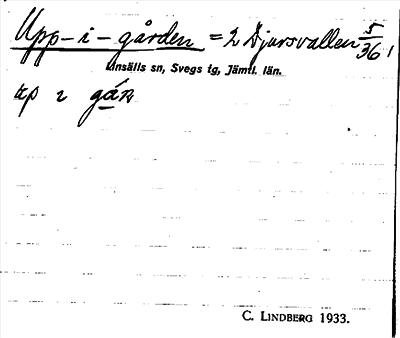 Upp-i-gården = 2 Djursvallen 5/36,
Linsälls sn, Svegs tg, Jämtl. län.
C. LINDBERG 1933.